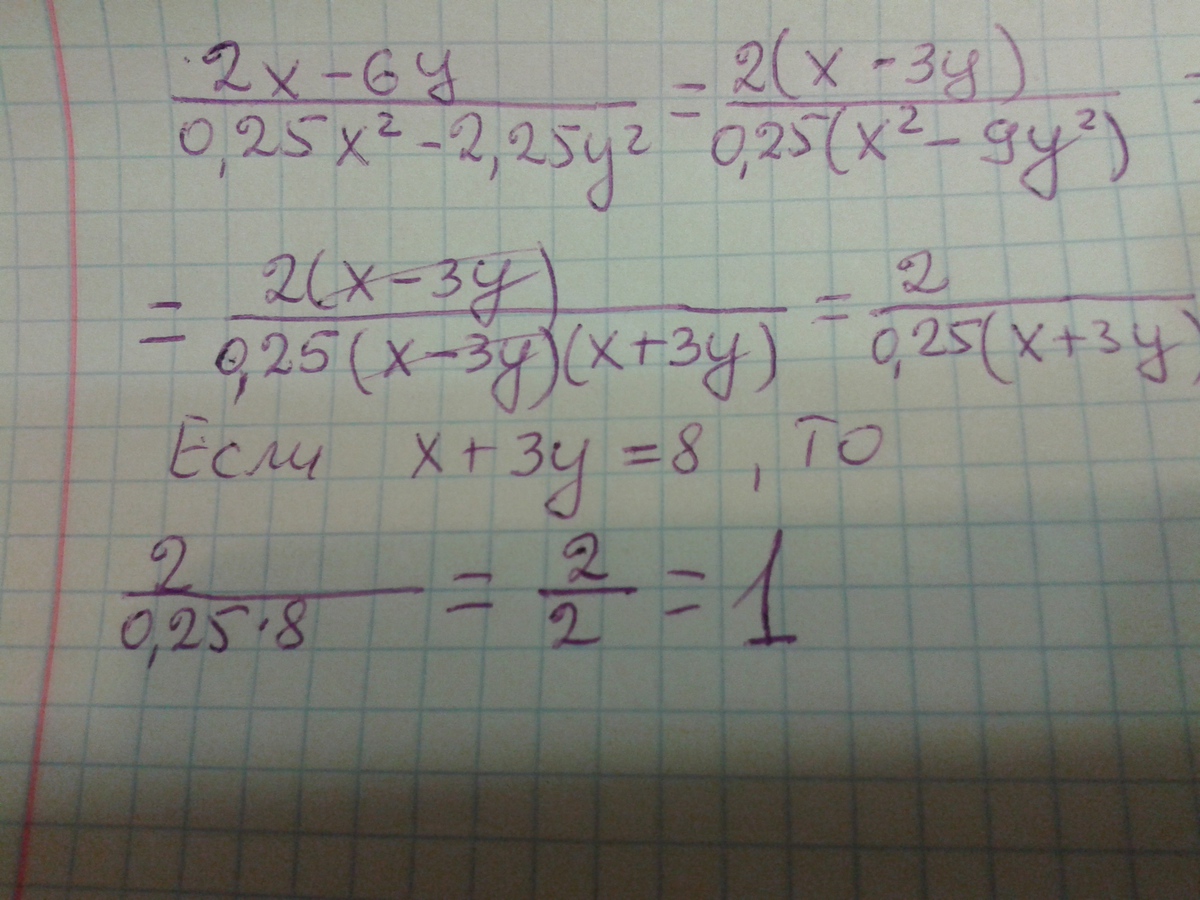 (2x - 6y)/(0,25x² - 2,25y²) = 2(x - 3y)/0,25(x² - 9y²) =
= 2(x - 3y)/0,25(x - 3y)(x + 3y) = 2/0,25(x + 3y)
Если x + 3y = 8, то
2/0,25·8 = 2/2 = 1